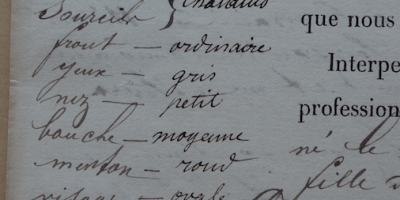 Sourcils } châtains
front — ordinaire
yeux — gris
nez — petit
bouche — moyenne
menton — rond
visage — ovale
que nous
Interpe
profession
né le
fille